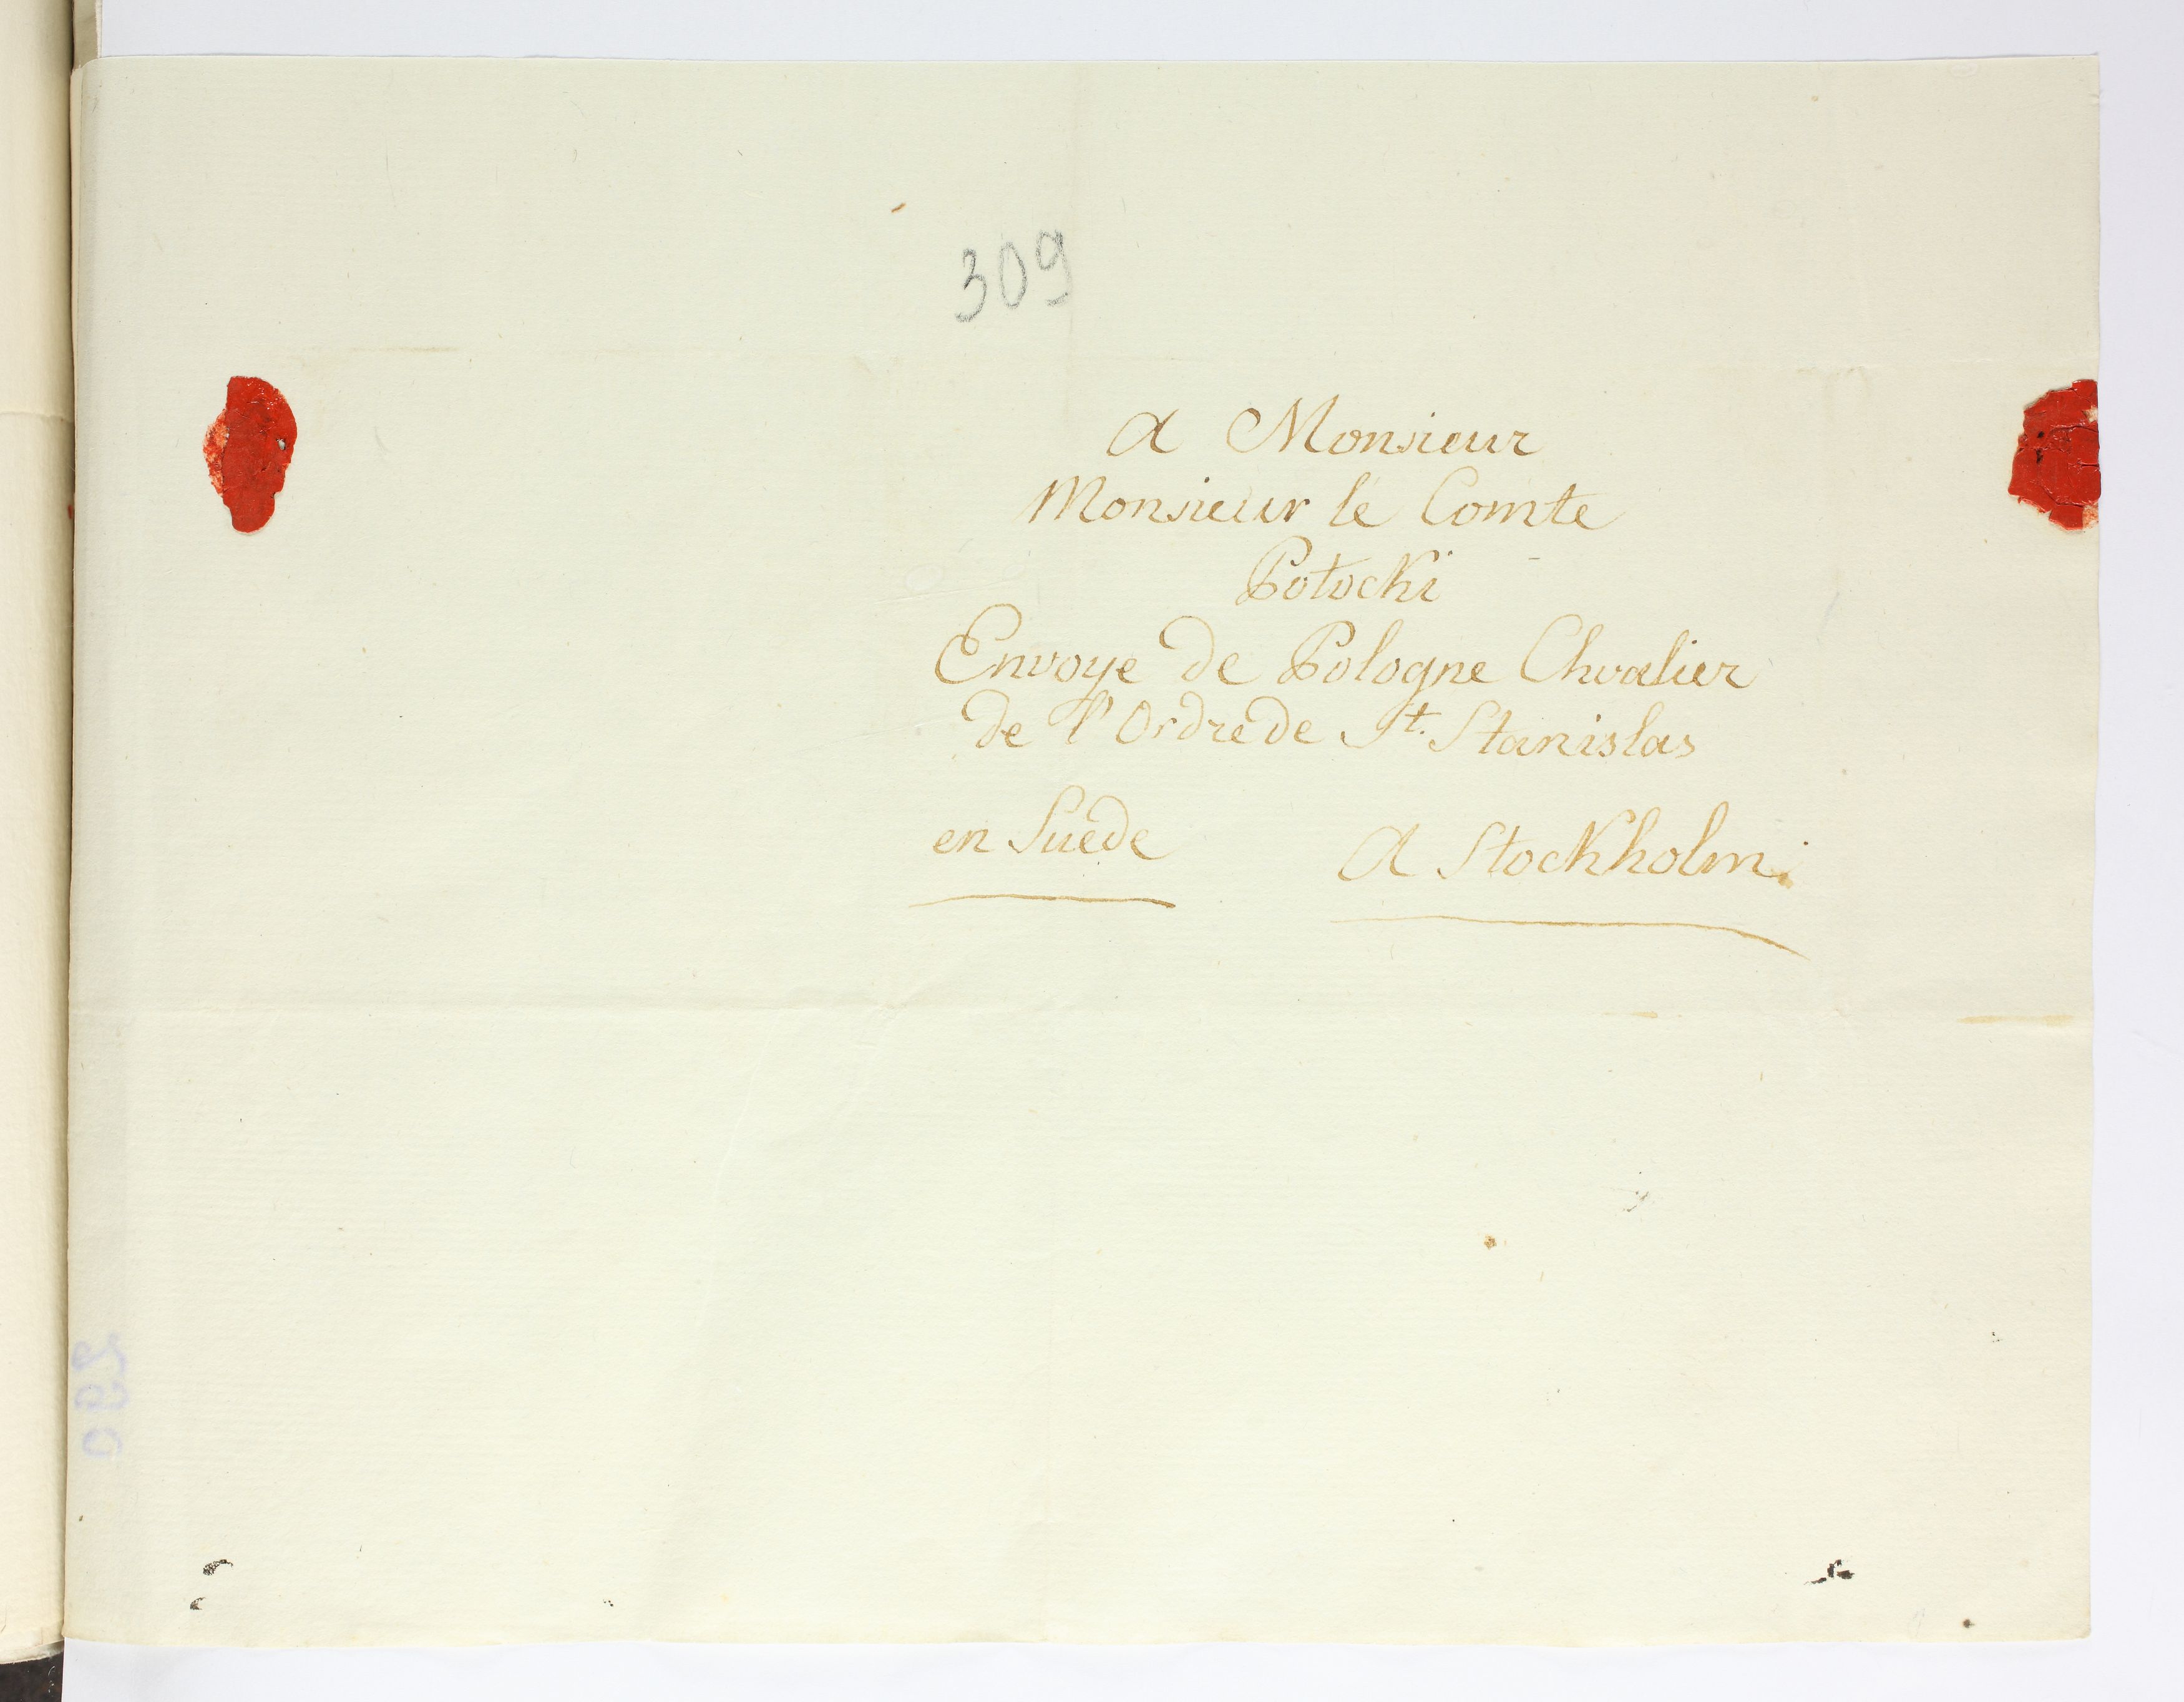 309
A Monsieur
Monsieur le Comte
Potocki
Envoye de Pologne Chvalier
de l'Ordre de St. Stanislas
en Suede A Stockholm.
290